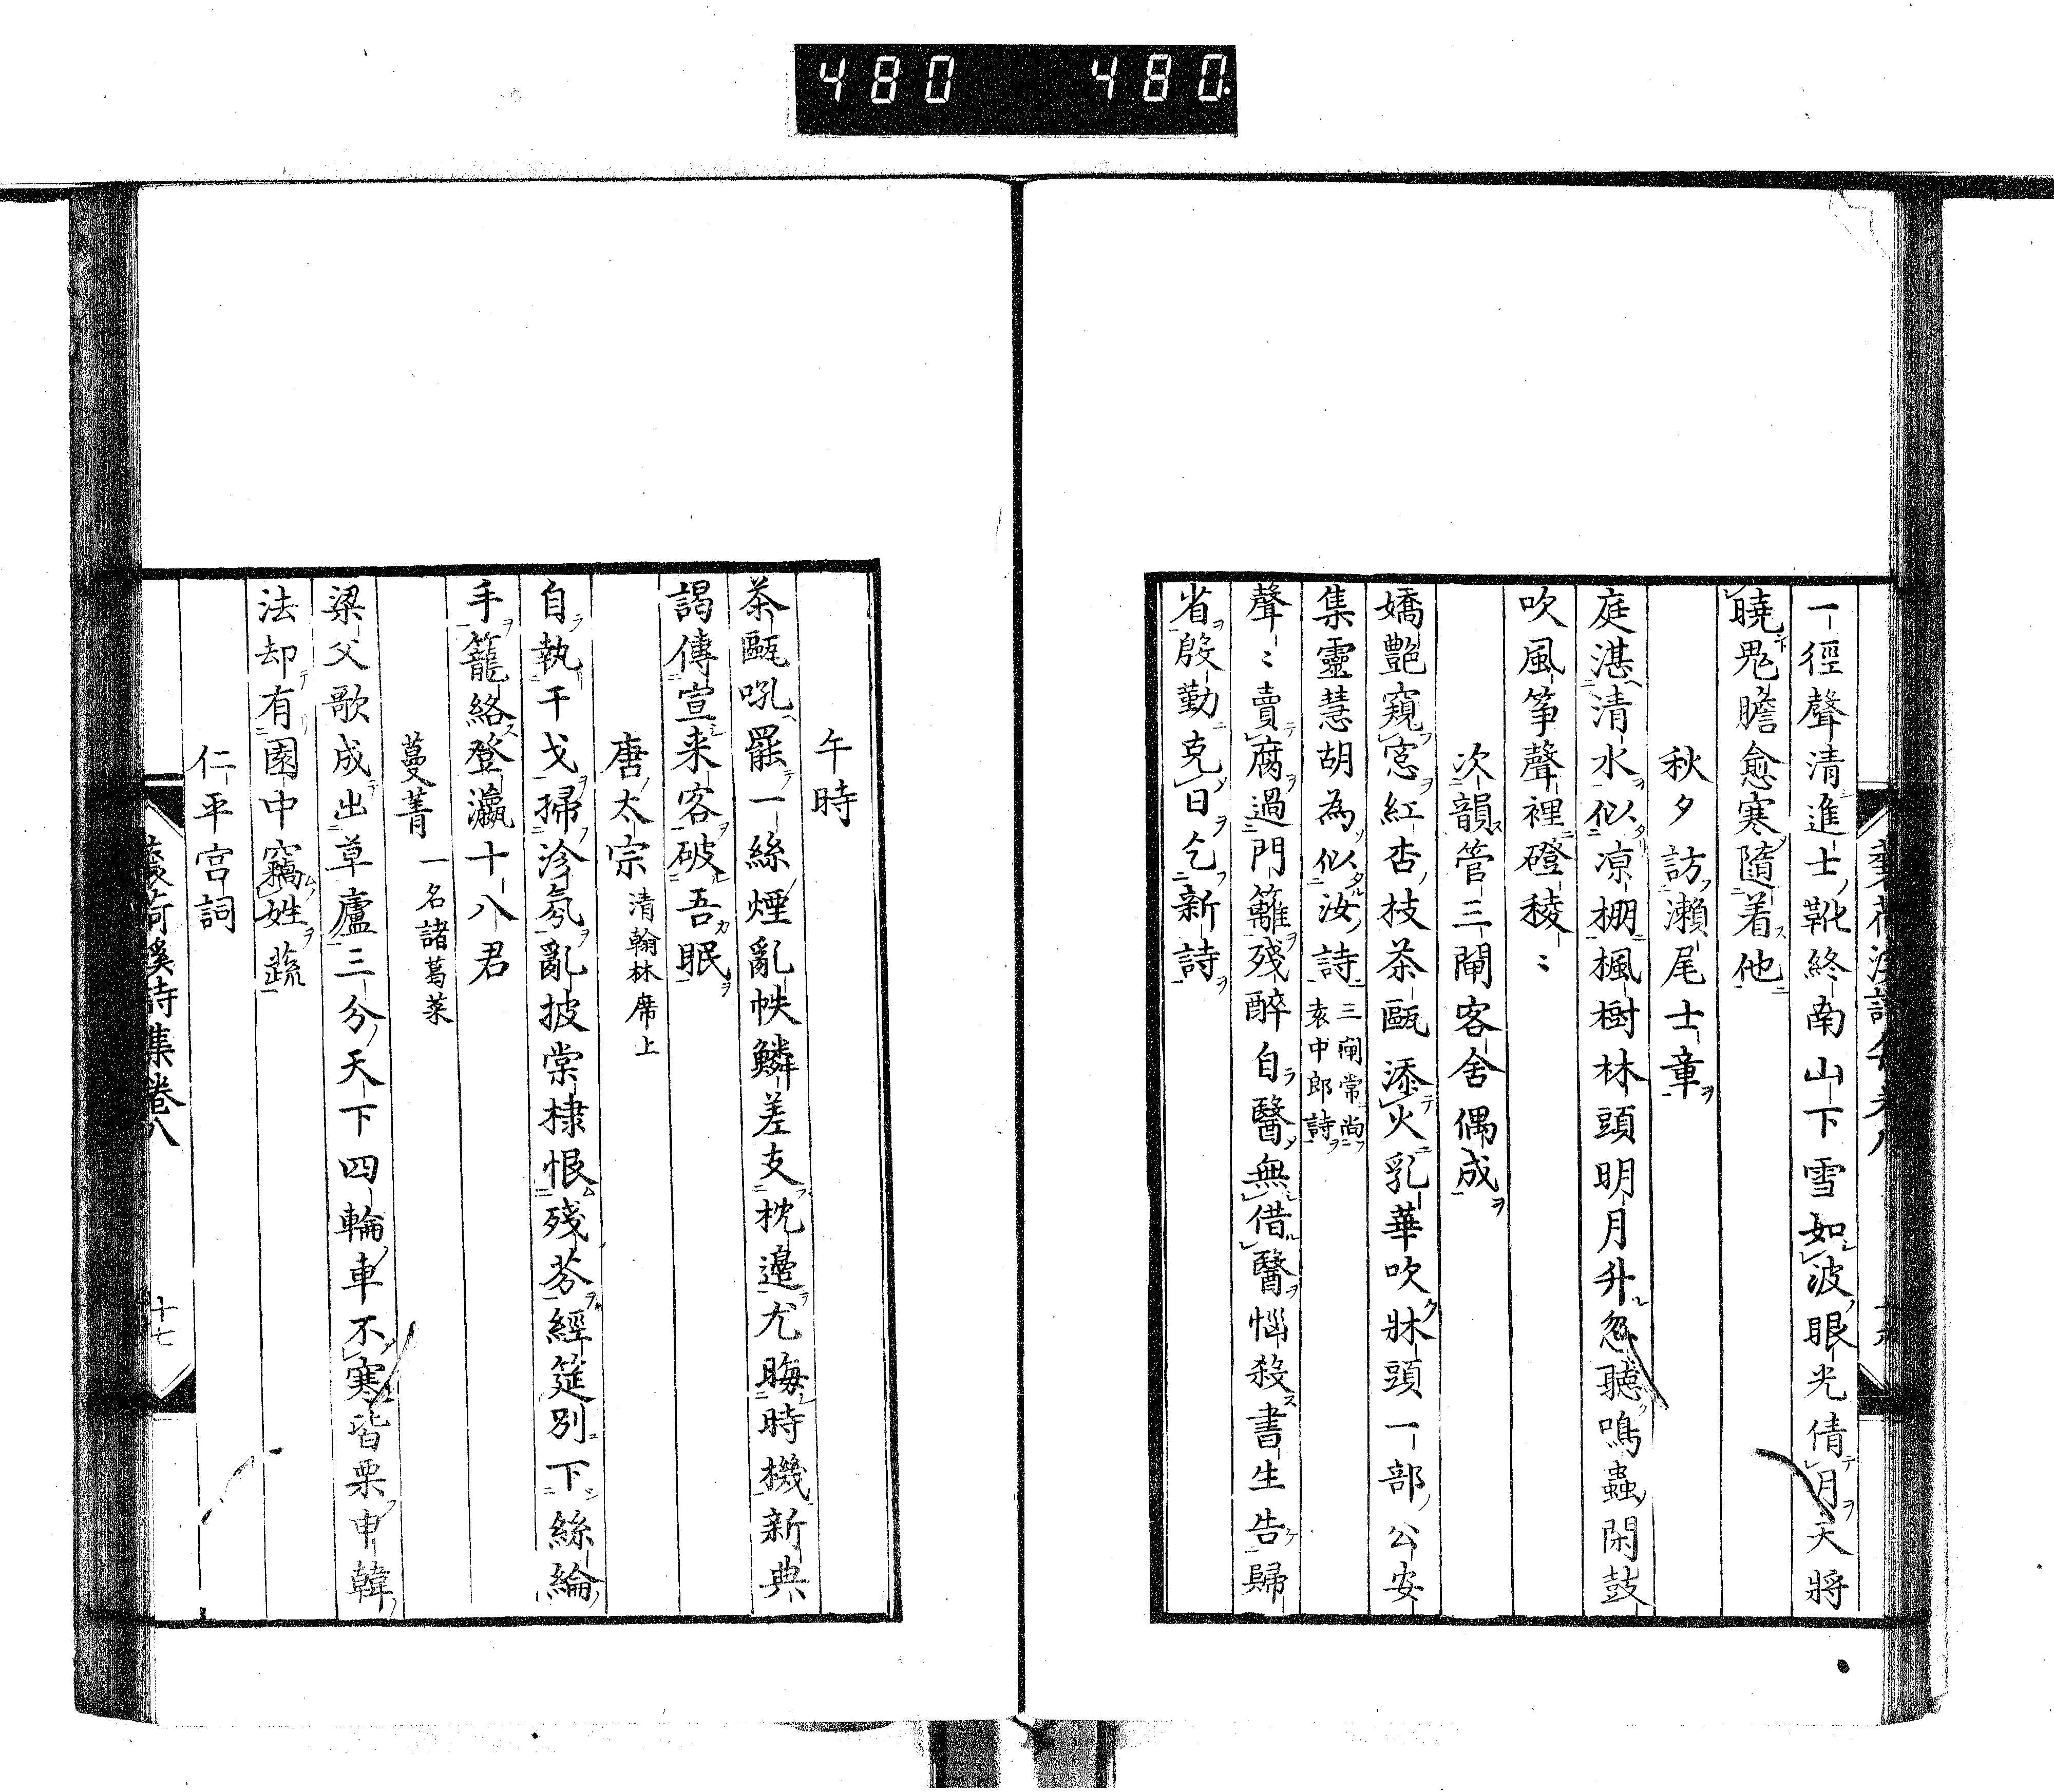 480 480
一徑聲清進士靴終南山下雪如波眼光倩月天將
曉鬼膽愈寒隨着他
秋夕訪瀨尾士章
庭湛清水似凉棚楓樹林頭明月升忽聽鳴蟲閑鼓
吹風筝聲裡磴稜〻
次韻管三閘客舍偶成
嬌艷窺窓紅杏枝茶甌添火乳華吹牀頭一部公安
集靈慧胡為似汝詩 三閘常尚袁中郎詩
聲〻賣腐過門籬殘醉自醫無借醫惱殺書生告歸
省殷勤克日乞新詩
詩集卷八
午時
茶甌吼罷一絲煙亂帙鱗差支枕邊尤晦時機新典
謁傳宣来客破吾眠
唐太宗 清翰林席上
自執干戈掃沴氛亂披棠棣恨殘芬經筵別下絲綸
手籠絡登瀛十八君
蔓菁 一名諸葛菜
梁父歌成出草廬三分天下四輪車不寒皆栗申韓
法却有園中竊姓蔬
仁平宮詞
荷溪詩集卷八
十七